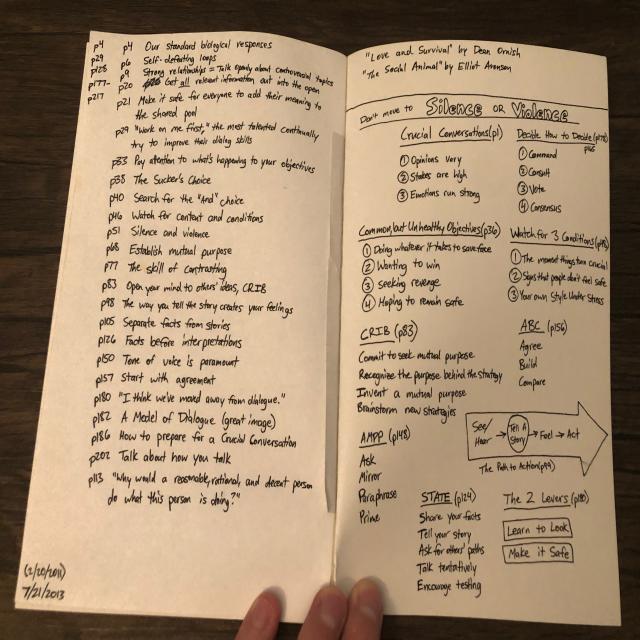 p4 p4 Our standard biological responses
p29 p6 Self-defeating loops
p128 p9 Strong relationships = Talk openly about controversial topics
p177- p20 Get all relevant information out into the open
p217 p21 Make it safe for everyone to add their meaning to
the shared pool
p29 "Work on me first," the most talented continually
try to improve their dialog skills
p33 Pay attention to what's happening to your objectives
p38 The Sucker's Choice
p40 Search for the "And" choice
p46 Watch for content and conditions
p51 Silence and violence
p68 Establish mutual purpose
p77 The skill of contrasting
p83 Open your mind to others' ideas, CRIB
p98 The way you tell the story creates your feelings
p105 Separate facts from stories
p126 Facts before interpretations
p150 Tone of voice is paramount
p157 Start with agreement
p180 "I think we've moved away from dialogue."
p182 A Model of Dialogue (great image)
p186 How to prepare for a Crucial Conversation
p202 Talk about how you talk
p113 "Why would a reasonable, rational, and decent person
do what this person is doing?"
(2/20/2011)
7/21/2013
"Love and Survival" by Dean Ornish
"The Social Animal" by Elliot Aronson
Don't move to Silence OR Violence
Crucial Conversations (p1)
① Opinions vary
② Stakes are high
③ Emotions run strong
Decide How to Decide
① Command
② Consult
③ Vote
④ Consensus
Common, but Unhealthy Objectives (p36)
① Doing whatever it takes to save face
② Wanting to win
③ Seeking revenge
④ Hoping to remain safe
Watch for 3 Conditions
① The moment things turn crucial
② Signs that people don't feel safe
③ Your own Style Under Stress
CRIB (p83)
Commit to seek mutual purpose
Recognize the purpose behind the strategy
Invent a mutual purpose
Brainstorm new strategies
ABC (p156)
Agree
Build
Compare
See/
Hear → Tell A
Story → Feel → Act
The Path to Action (p99)
AMPP (p148)
Ask
Mirror
Paraphrase
Prime
STATE (p124)
Share your facts
Tell your story
Ask for others' paths
Talk tentatively
Encourage testing
The 2 Levers (p180)
Learn to Look
Make it Safe